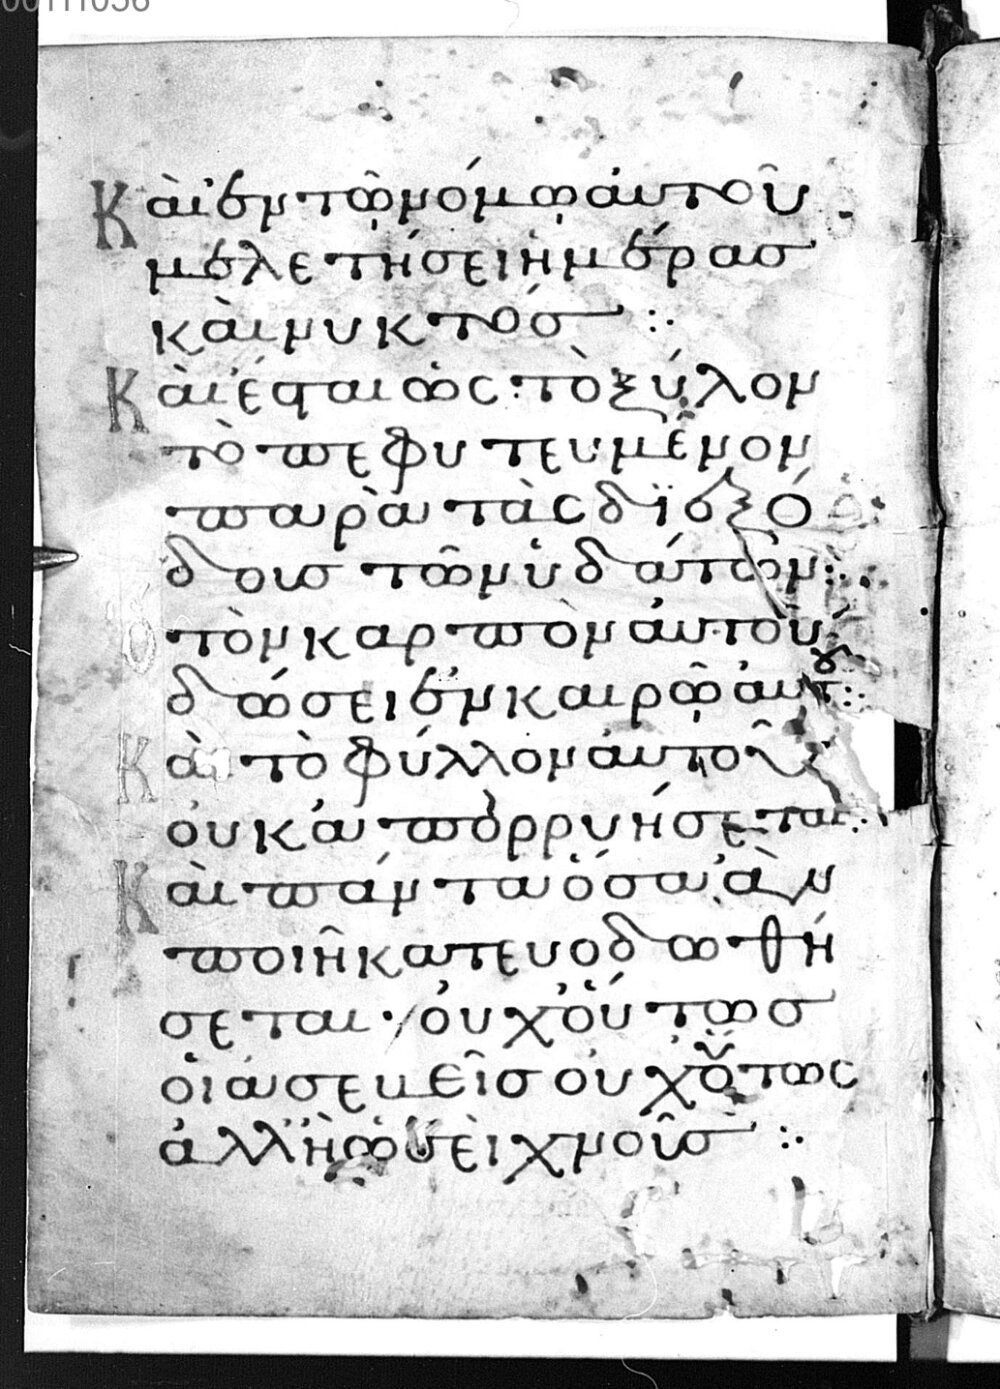 00111036
Καὶ ἐν τῷ νόμῳ αὐτοῦ
μελετήσει ἡμέρας
καὶ νυκτός :·
Καὶ ἔσται ὡς τὸ ξύλον
τὸ πεφυτευμένον
παρὰ τὰς διεξό
δους τῶν ὑδάτων:·
τὸν καρπὸν αὐτοῦ
δώσει ἐν καιρῷ αὐτ :·
Κα τὸ φύλλον αὐτοῦ
οὐκ ἀπορρυήσεται:·
Καὶ πάντα ὅσα ἂν
ποιῆ κατευοδωθή
σεται · οὐχ οὕτως
οἱ ἀσεβεῖς οὐχ οὕτως
ἀλλ' ἢ ὡσεὶ χνοῦς :·